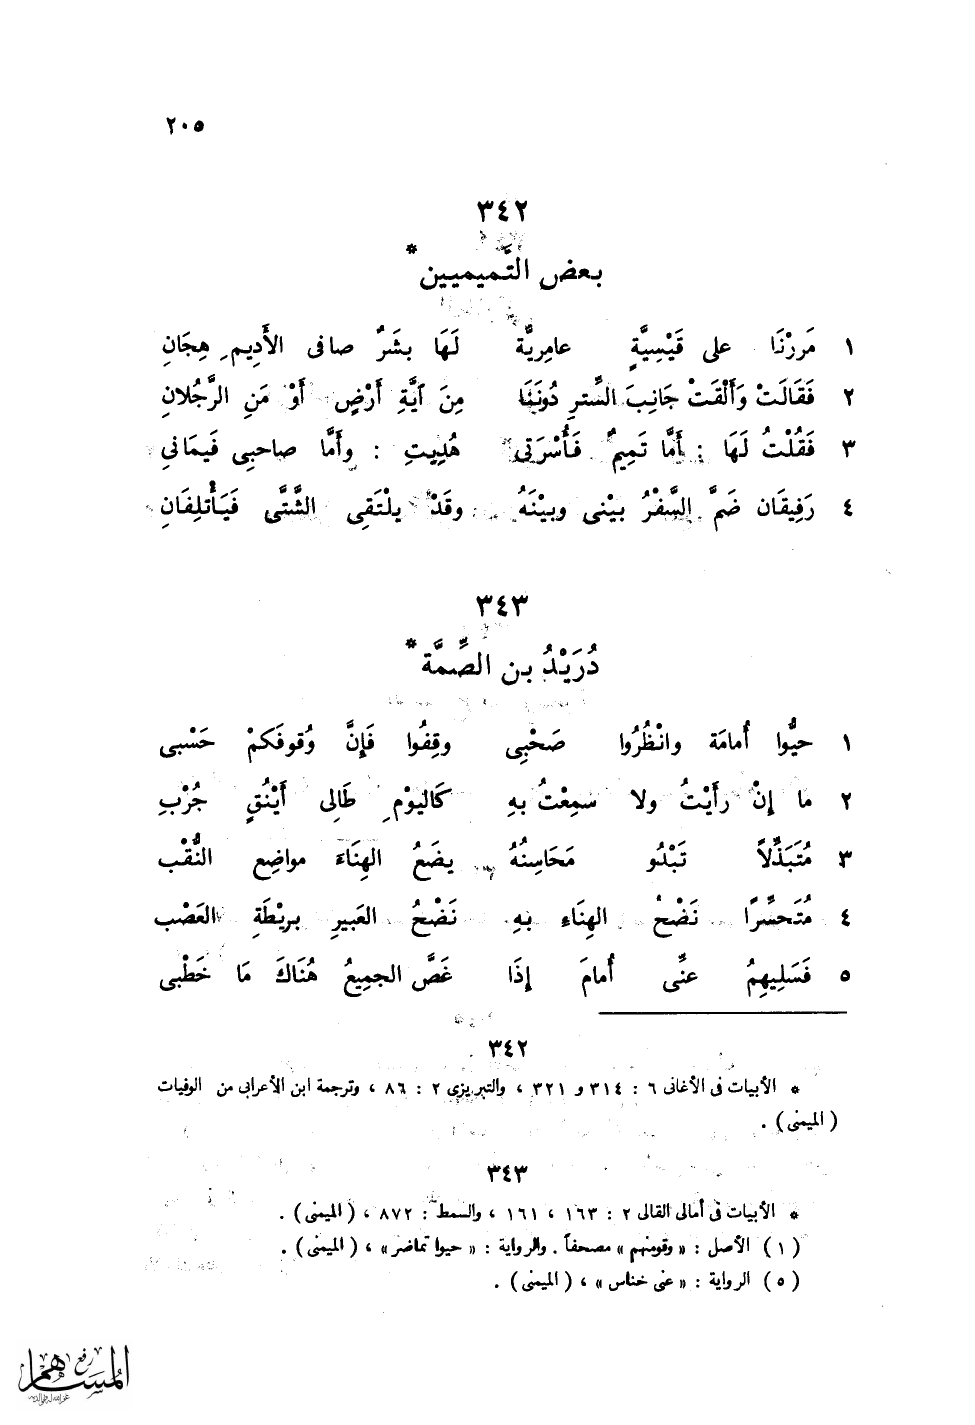 ٢٠٥
٣٤٢
بعض التَّميميين*
١ مَررْنَا على قَيْسِيَّةٍ عامِريَّة لَهَا بشَرٌ صافى الأَدِيم هِجَانِ
٢ فَقَالَتْ وَأَلْقَتْ جَانِبَ السِّترِ دُونَنَا مِنَ آيَّةِ أَرْضٍ أَوْ مَنِ الرَّجُلانِ
٣ فَقُلْتُ لَهَا : أَمَّا تَمِيمٌ فَأُسْرَتى هُدِيتِ : وأَمَّا صاحبِى فَيمَانيِ
٤ رَفِيقَان ضَمَّ السَّفْرُ بيْنى وبيْنَهُ وقَدْ يلْتَقِى الشَّتَّى فَيَأْتلِفَانِ
٣٤٣
دُرَيْدُ بن الصِّمَّة*
١ حيُّوا أُمامَة وانْظُرُوا صَحْبِى وقِفُوا فَإِنَّ وُقوفَكمْ حَسْبى
٢ ما إِنْ رأَيْتُ ولا سمِعْتُ بهِ كَاليوْمِ طَالِى أَيْنُقٍ جُرْبِ
٣ مُتَبَذِّلاً تَبْدُو مَحَاسِنُهُ يضَعُ الهِنَاءَ مواضِع النُّقْب
٤ مُتَحسِّرًا نَضْحُ الهِنَاءِ بهِ نَضْحُ العَبيرِ بريْطَةِ العَصْب
٥ فَسَلِيهِمُ عنِّى أُمامَ إِذَا غَصَّ الجمِيعُ هُنَاكَ مَا خَطْبى
٣٤٢
* الأبيات فى الأغانى ٦ : ٣١٤ و ٣٢١ ، والتبريزى ٢ : ٨٦ ، وترجمة ابن الأعرابى من الوفيات
( الميمنى ) .
٣٤٣
* الأبيات فى أمالى القالى ٢ : ١٦٣ ، ١٦١ ، والسمط : ٨٧٢ ، ( الميمنى ) .
( ١ ) الأصل : « وقومنهم » مصحفاً . والرواية : « حيوا تماضر » ، ( الميمنى ) .
( ٥ ) الرواية : « عنى خناس » ، ( الميمنى ) .
رفع
المساهم